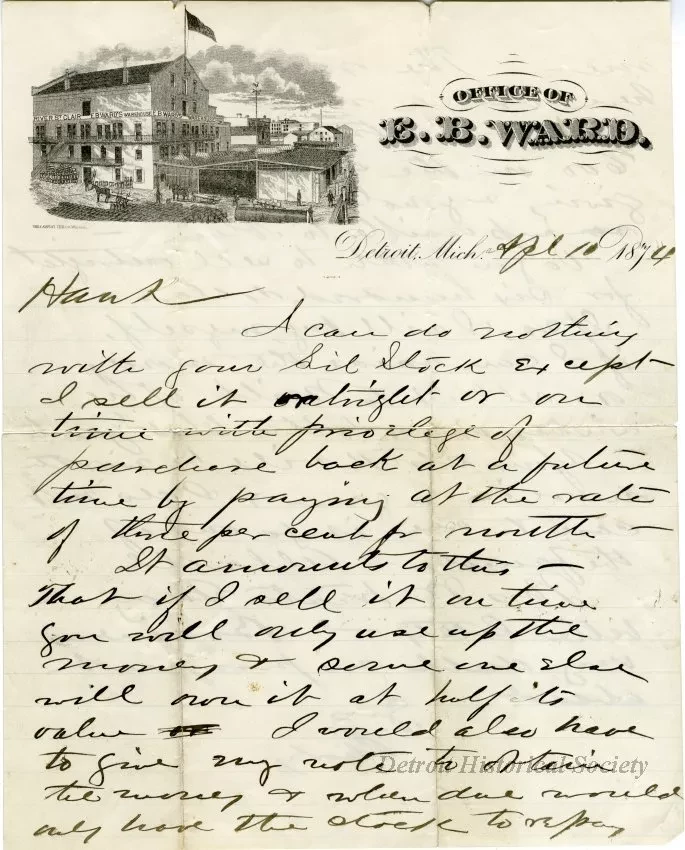 OFFICE OF
E. B. WARD.
RIVER ST CLAIR E B WARD'S WAREHOUSE E.B. WARD
Detroit, Mich. Apl 10 1874
Hank
I can do nothing
with your Sil Stock Except
I sell it outright or on
time with privilege of
purchase back at a future
time by paying at the rate
of three per cent pr month —
It amounts to this —
That if I sell it on time
you will only use up the
money & some one Else
will own it at half its
value I would also have
to give my note to obtain
the money & when due would
only have the stock to repay
Detroit Historical Society